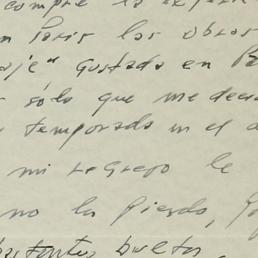 compré la
en París las obras
aje" Gustado en B
sólo que me deci
temporada en el
mi regreso le
no la pierdo,
bastantes bultos,